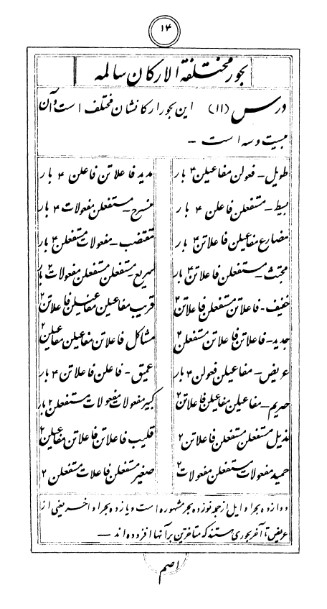 ۱۴
بحور مختلفة الارکان سالمه
درس (۱۱) این بحور ارکانشان مختلف است و آن
بیست و سه است –
طویل – فعولن مفاعیلن ۴ بار
مدید فاعلاتن فاعلن ۴ بار
بسیط – مستفعلن فاعلن ۴ بار
منسرح – مستفعلن مفعولات ۴ بار
مضارع مفاعیلن فاعلاتن ۴ بار
مقتضب – مفعولات مستفعلن ۴ بار
مجتث – مستفعلن فاعلاتن ۴ بار
سریع – مستفعلن مستفعلن مفعولات ۲ بار
خفیف – فاعلاتن مستفعلن فاعلاتن ۲
قریب مفاعیلن مفاعیلن فاعلاتن ۲
جدید – فاعلاتن فاعلاتن مستفعلن ۲
مشاکل فاعلاتن مفاعیلن مفاعیلن ۲
عریض – مفاعیلن فعولن ۴ بار
عمیق – فاعلن فاعلاتن ۴ بار
صریم – مفاعیلن فاعلاتن فاعلاتن ۲
کبیر مفعولات مفعولات مستفعلن ۲ بار
مذیل مستفعلن مستفعلن فاعلاتن ۲
قلیب فاعلاتن فاعلاتن مفاعیلن ۲
حمید مفعولات مستفعلن مفعولات ۲
صغیر مستفعلن فاعلات مستفعلن ۲
دوازده بحر اوایل از جمله نوزده بحر مشهوره است و یازده بحر اواخر یعنی از
عریض تا آخر بحوری هستند که متأخرین بر آنها افزوده‌اند –
اصم